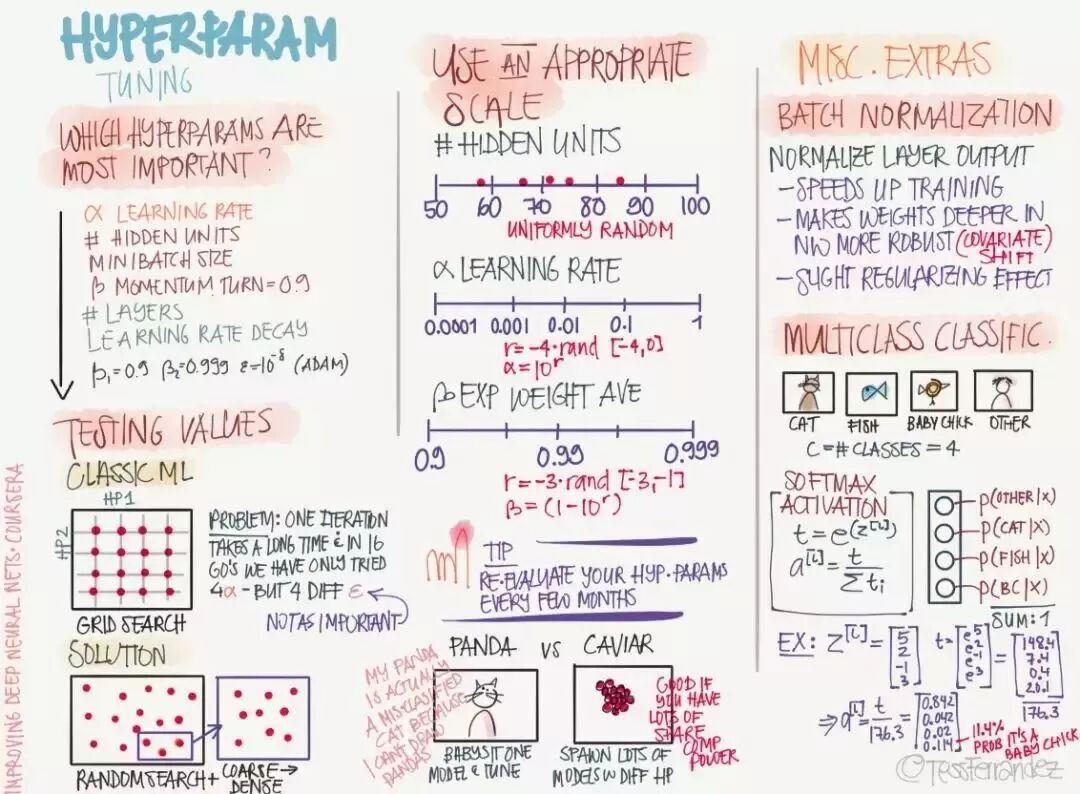 HYPERPARAM
TUNING
WHICH HYPERPARAMS ARE
MOST IMPORTANT?
α LEARNING RATE
# HIDDEN UNITS
MINIBATCH SIZE
β MOMENTUM TURN=0.9
# LAYERS
LEARNING RATE DECAY
β₁=0.9 β₂=0.999 ε=10⁻⁸ (ADAM)
TESTING VALUES
CLASSIC ML
HP1
HP2
GRID SEARCH
PROBLEM: ONE ITERATION
TAKES A LONG TIME & IN 16
GO'S WE HAVE ONLY TRIED
4α - BUT 4 DIFF ε
NOT AS IMPORTANT
SOLUTION
RANDOM SEARCH +
COARSE→
DENSE
IMPROVING DEEP NEURAL NETS · COURSERA
USE AN APPROPRIATE
SCALE
# HIDDEN UNITS
50 60 70 80 90 100
UNIFORMLY RANDOM
α LEARNING RATE
0.0001 0.001 0.01 0.1 1
r=-4·rand [-4,0]
α=10^r
β EXP WEIGHT AVE
0.9 0.99 0.999
r=-3·rand [-3,-1]
β=(1-10^r)
TIP
RE-EVALUATE YOUR HYP.PARAMS
EVERY FEW MONTHS
PANDA VS CAVIAR
MY PANDA
IS ACTUALLY
A MISCLASSIFIED
CAT BECAUSE
I CAN'T DRAW
PANDAS
BABYSIT ONE
MODEL & TUNE
SPAWN LOTS OF
MODELS W DIFF HP
GOOD IF
YOU HAVE
LOTS OF
SPARE
COMP
POWER
MISC. EXTRAS
BATCH NORMALIZATION
NORMALIZE LAYER OUTPUT
- SPEEDS UP TRAINING
- MAKES WEIGHTS DEEPER IN
NW MORE ROBUST (COVARIATE)
SHIFT
- SLIGHT REGULARIZING EFFECT
MULTICLASS CLASSIFIC.
CAT FISH BABY CHICK OTHER
C=# CLASSES = 4
SOFTMAX
ACTIVATION
t=e^(z^[L])
a^[L]=t/∑tᵢ
P(OTHER|X)
P(CAT|X)
P(FISH|X)
P(BC|X)
SUM:1
EX: Z^[L]=[5 2 -1 3] t=[e⁵ e² e⁻¹ e³]=[148.4 7.4 0.4 20.1]
176.3
⇒a^[L]=t/176.3=[0.842 0.042 0.02 0.114]
11.4%
PROB IT'S A
BABY CHICK
©TessFerrandez